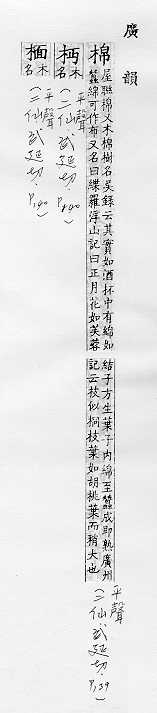 廣韻
棉
屋聮棉又木棉樹名吳録云其實如酒杯中有綿如
蠶綿可作布又名曰緤羅浮山記曰正月花如芙蓉
結子方生葉子内綿至蠶成即熟廣州
記云枝似桐枝葉如胡桃葉而稍大也
平聲
(二仙,武延切,P.139)
木
名
平聲
(二仙,武延切,P.140)
木
名
平聲
(二仙,武延切,P.140)